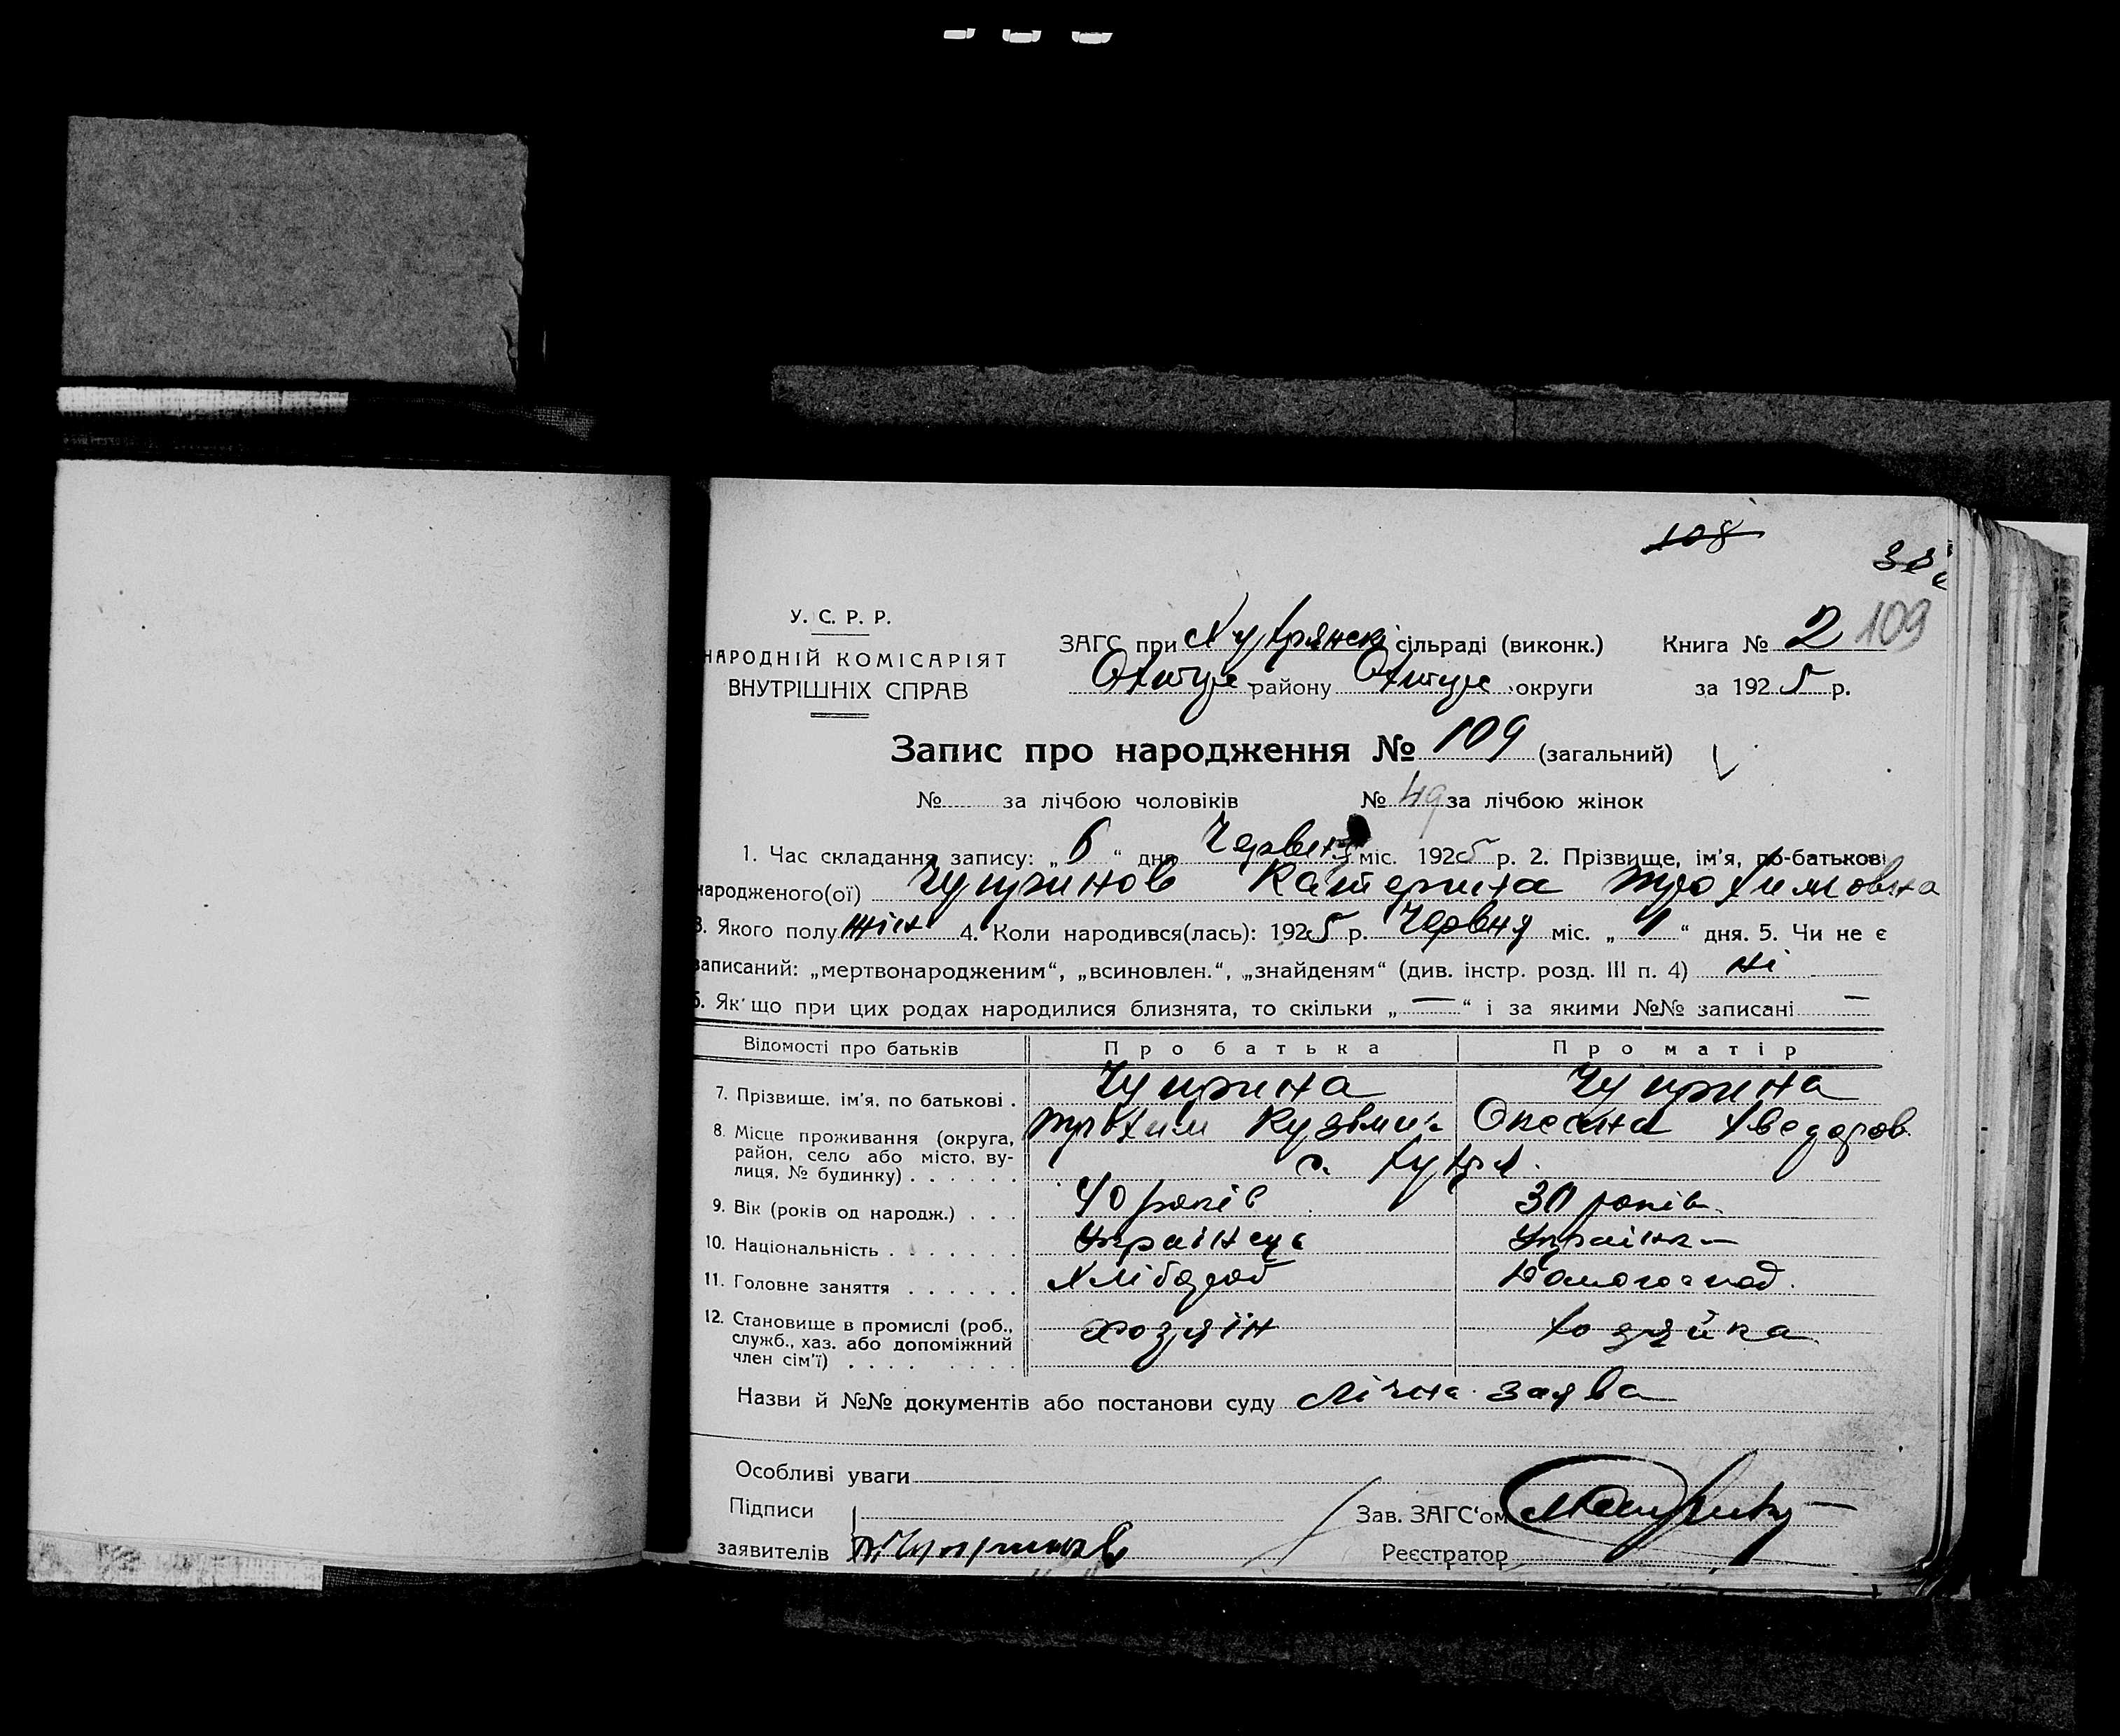 108
У. С. Р. Р.
НАРОДНІЙ КОМІСАРІЯТ
ВНУТРІШНІХ СПРАВ
ЗАГС при Хухрянскі сільраді (виконк.)
Охтир району Охтир округи
Книга № 2 109
за 1925 р.
Запис про народження № 109 (загальний)
№ за лічбою чоловіків № 49 за лічбою жінок
1. Час складання запису: „ 6 “ дня Червня міс. 1925 р. 2. Прізвище, ім'я, по-батькові
народженого(ої) Чупринов Катерина Трохимовна
3. Якого полу жін 4. Коли народився(лась): 1925 р. Червня міс. „ 1 “ дня. 5. Чи не є
записаний: „мертвонародженим“, „всиновлен.“, „знайденям“ (див. інстр. розд. III п. 4) ні
6. Як що при цих родах народилися близнята, то скільки „ — “ і за якими №№ записані —
Відомості про батьків Про батька Про матір
7. Прізвище, ім'я, по батькові . Чуприна Чуприна
Трохим Кузьмич Оксана Хведоров
8. Місце проживання (округа,
район, село або місто, ву-
лиця, № будинку) . . . . . . с. Хухря
9. Вік (років од народж.) . . . 40 років 30 років
10. Національність . . . . . . . Українець Українк
11. Головне заняття . . . . . . Хлібороб Домогоспод.
12. Становище в промислі (роб.,
служб., хаз. або допоміжний
член сім'ї) . . . . хозяїн хозяйка
Назви й №№ документів або постанови суду Лічна заява
Особливі уваги
Підписи
заявителів Т. Чупринов
Зав. ЗАГС'ом
Реєстратор